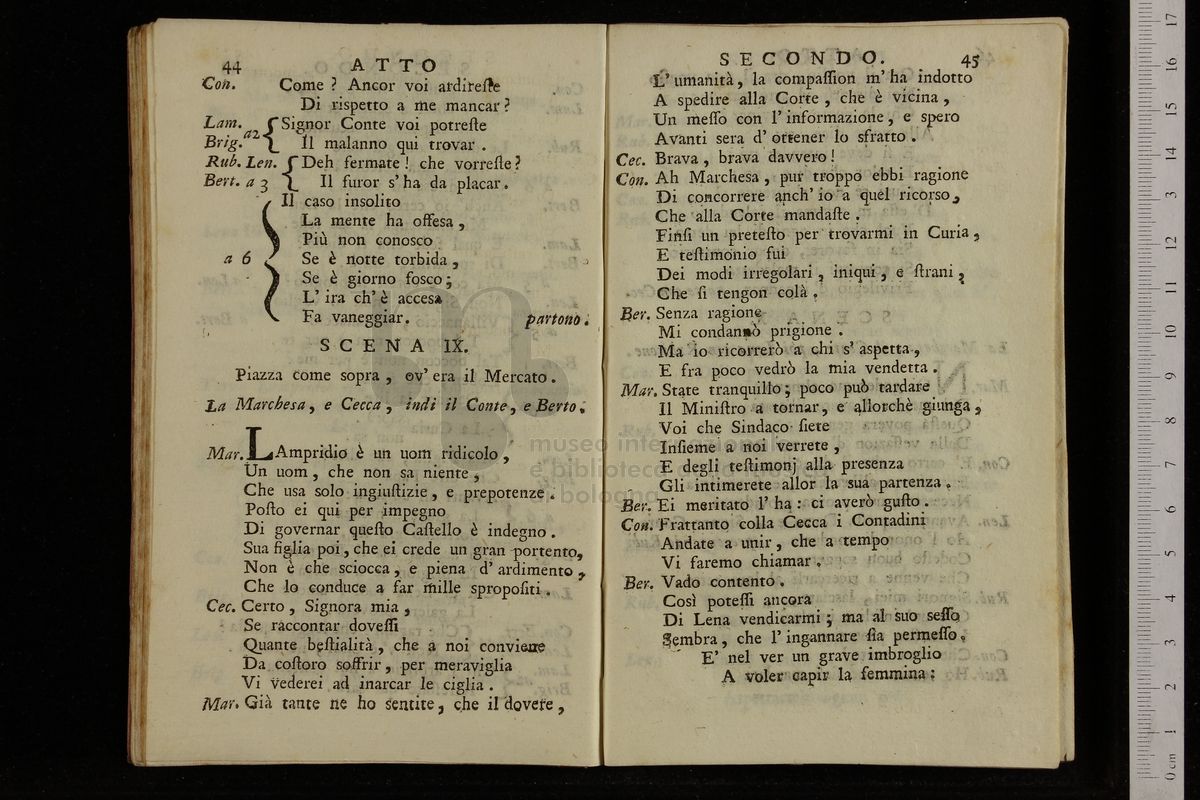 44 ATTO
Con. Come ? Ancor voi ardireſte
Di rispetto a me mancar ?
Lam. Signor Conte voi potreſte
Brig. a2 Il malanno qui trovar .
Rub. Len. Deh fermate ! che vorreſte ?
Bert. a 3 Il furor s' ha da placar .
Il caso insolito
La mente ha offesa ,
Più non conosco
a 6 Se è notte torbida ,
Se è giorno fosco ;
L' ira ch' è accesa
Fa vaneggiar . partono .
SCENA IX.
Piazza come sopra , ov' era il Mercato .
La Marchesa , e Cecca , indi il Conte , e Berto .
Mar. LAmpridio è un uom ridicolo ,
Un uom , che non sa niente ,
Che usa solo ingiuſtizie , e prepotenze .
Poſto ei qui per impegno
Di governar queſto Caſtello è indegno .
Sua figlia poi , che ei crede un gran portento,
Non è che sciocca , e piena d' ardimento ,
Che lo conduce a far mille spropoſiti .
Cec. Certo , Signora mia ,
Se raccontar doveſſi
Quante beſtialità , che a noi conviene
Da coſtoro soffrir , per meraviglia
Vi vederei ad inarcar le ciglia .
Mar. Già tante ne ho sentite , che il dovere ,
SECONDO. 45
L' umanità , la compaſſion m' ha indotto
A spedire alla Corte , che è vicina ,
Un meſſo con l' informazione , e spero
Avanti sera d' ottener lo sfratto .
Cec. Brava , brava davvero !
Con. Ah Marchesa , pur troppo ebbi ragione
Di concorrere anch' io a quel ricorso ,
Che alla Corte mandaſte .
Finſi un preteſto per trovarmi in Curia ,
E teſtimonio fui
Dei modi irregolari , iniqui , e ſtrani ,
Che ſi tengon colà .
Ber. Senza ragione
Mi condannò prigione .
Ma io ricorrerò a chi s' aspetta ,
E fra poco vedrò la mia vendetta .
Mar. State tranquillo ; poco può tardare
Il Miniſtro a tornar , e allorchè giunga ,
Voi che Sindaco ſiete
Inſieme a noi verrete ,
E degli teſtimonj alla presenza
Gli intimerete allor la sua partenza .
Ber. Ei meritato l' ha : ci averò guſto .
Con. Frattanto colla Cecca i Contadini
Andate a unir , che a tempo
Vi faremo chiamar .
Ber. Vado contento .
Così poteſſi ancora
Di Lena vendicarmi ; ma al suo seſſo
Sembra , che l' ingannare ſia permeſſo .
E' nel ver un grave imbroglio
A voler capir la femmina :
museo internazionale
e biblioteca della musica
di bologna
0 cm 1 2 3 4 5 6 7 8 9 10 11 12 13 14 15 16 17